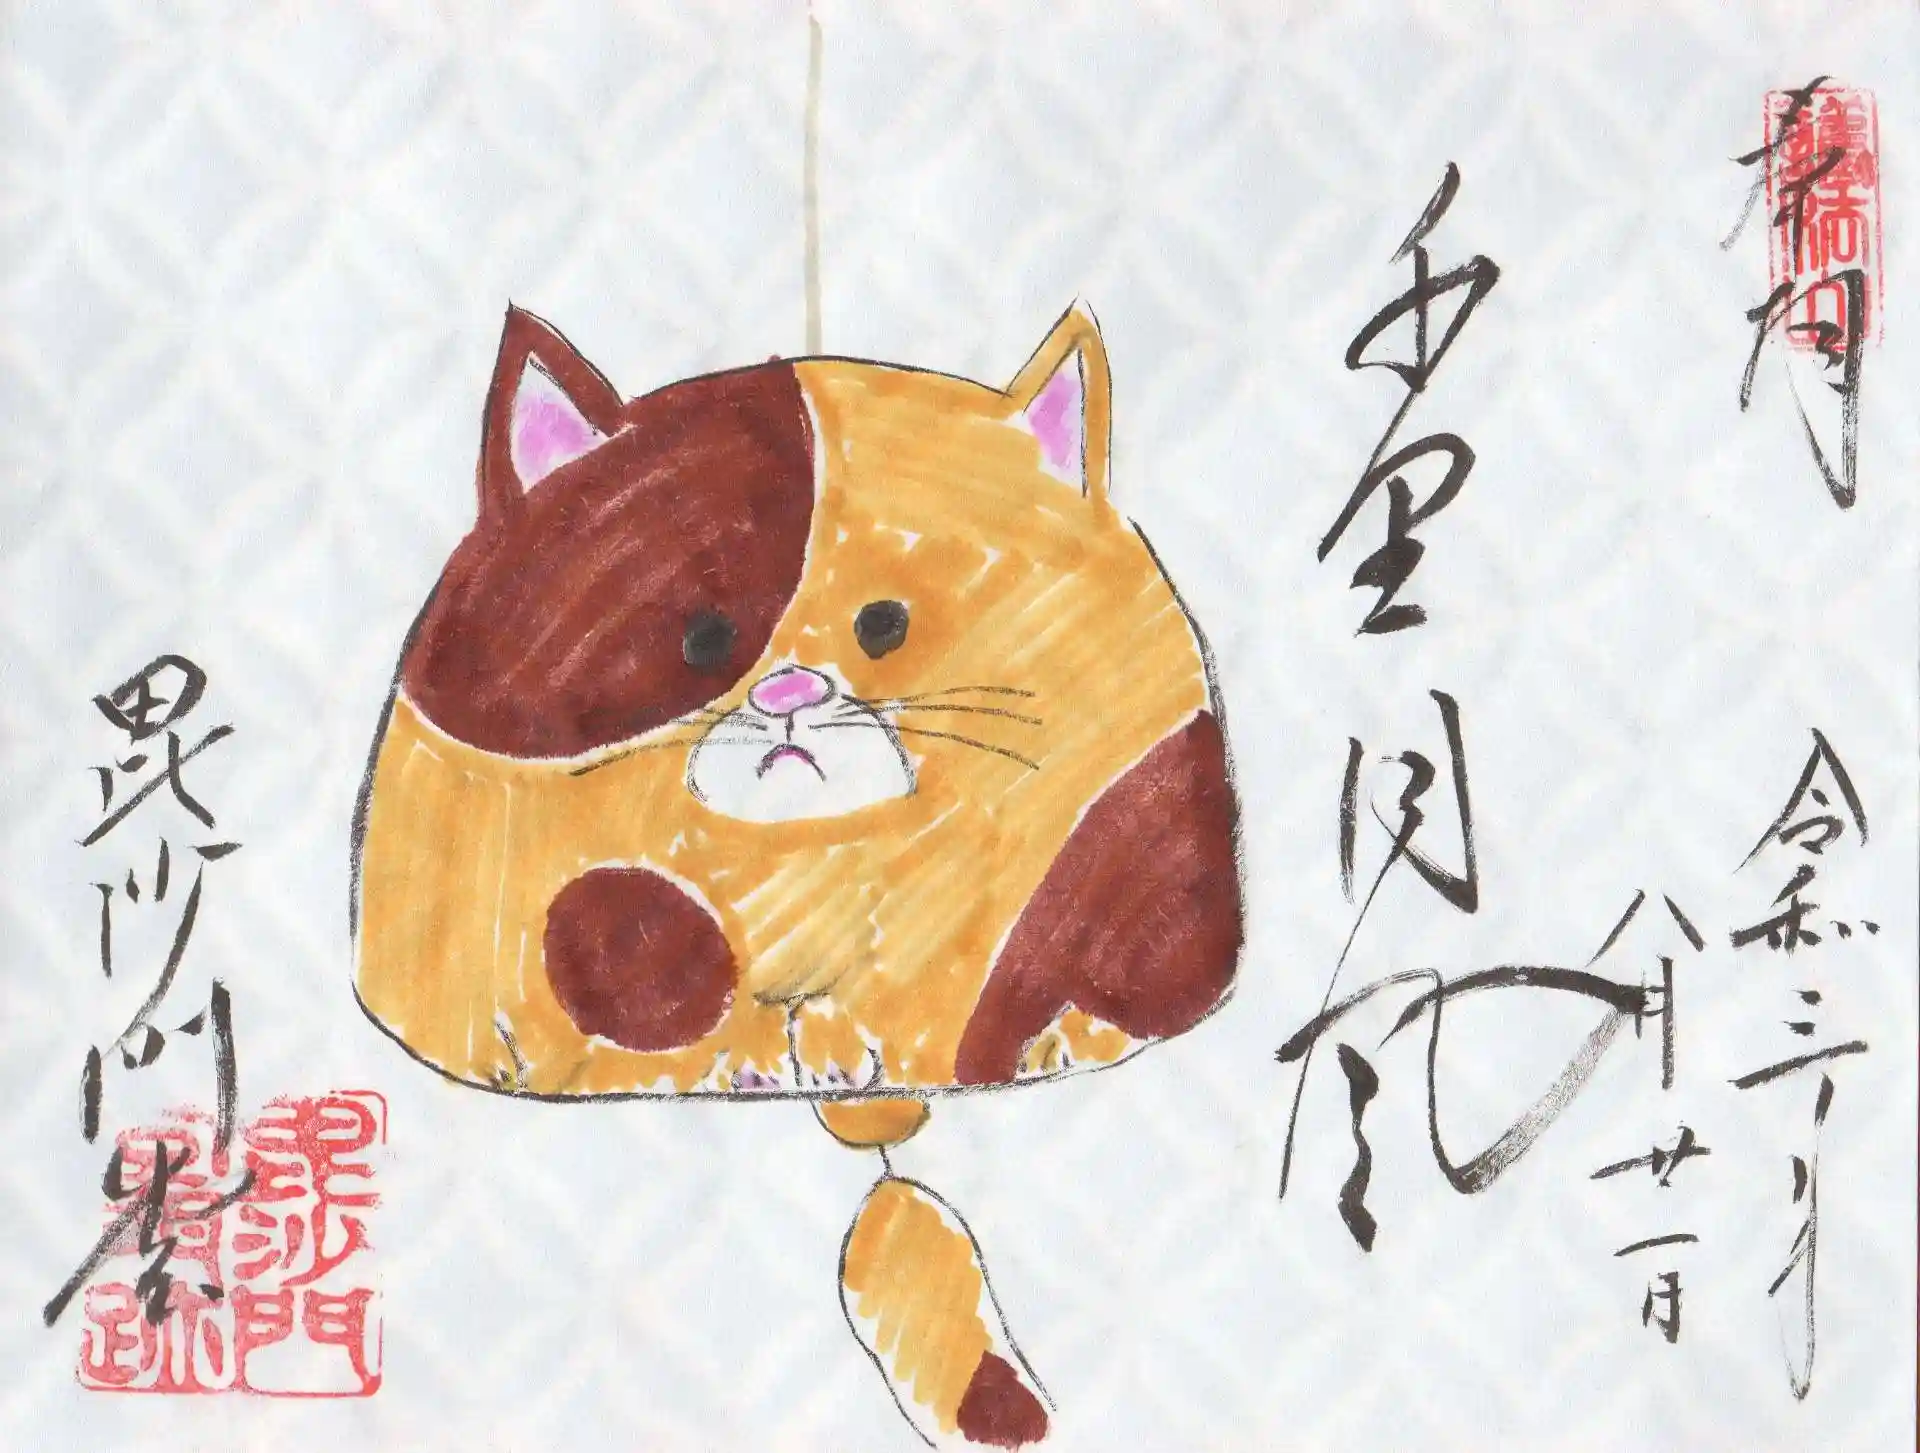 奉拝
令和三年
八月廿一日
千里同風
毘沙門堂
毘沙門
門跡